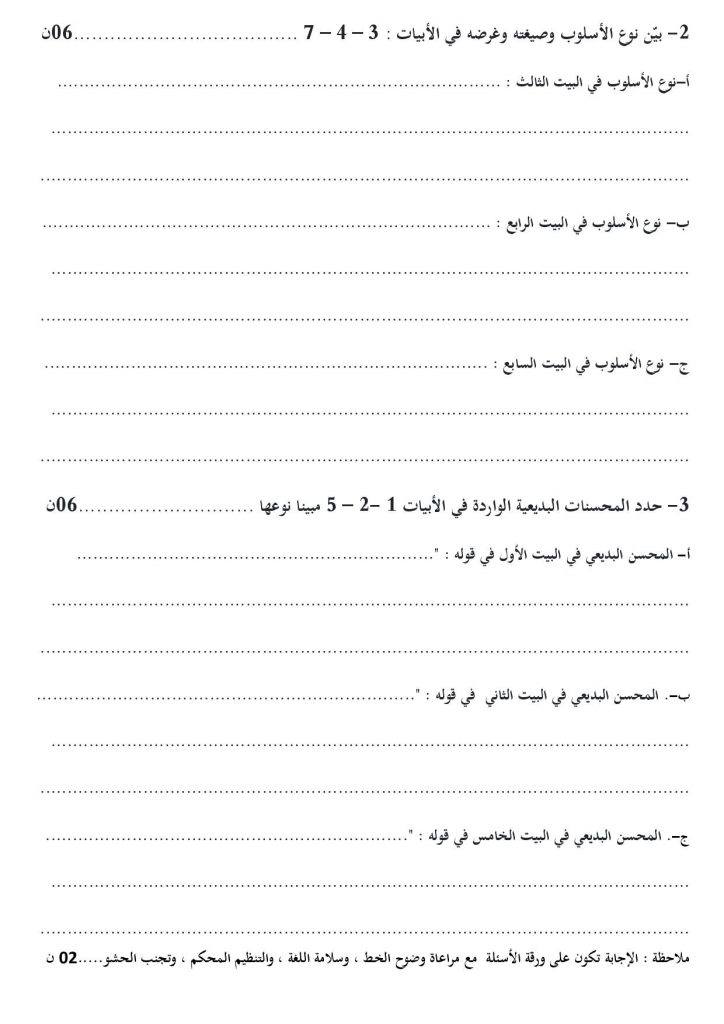 2- بيّن نوع الأسلوب وصيغته وغرضه في الأبيات : 3 – 4 – 7 ......................................06ن
أ-نوع الأسلوب في البيت الثالث : ................................................................................
........................................................................................................................
........................................................................................................................
ب- نوع الأسلوب في البيت الرابع : ................................................................................
........................................................................................................................
........................................................................................................................
ج- نوع الأسلوب في البيت السابع : ................................................................................
........................................................................................................................
........................................................................................................................
3- حدد المحسنات البديعية الواردة في الأبيات 1 –2 – 5 مبينا نوعها .............................06ن
أ- المحسن البديعي في البيت الأول في قوله : "..................................................................
........................................................................................................................
........................................................................................................................
ب-. المحسن البديعي في البيت الثاني في قوله : "......................................................................
........................................................................................................................
........................................................................................................................
ج-. المحسن البديعي في البيت الخامس في قوله : "...................................................................
........................................................................................................................
........................................................................................................................
ملاحظة : الإجابة تكون على ورقة الأسئلة مع مراعاة وضوح الخط ، وسلامة اللغة ، والتنظيم المحكم ، وتجنب الحشو.....02 ن